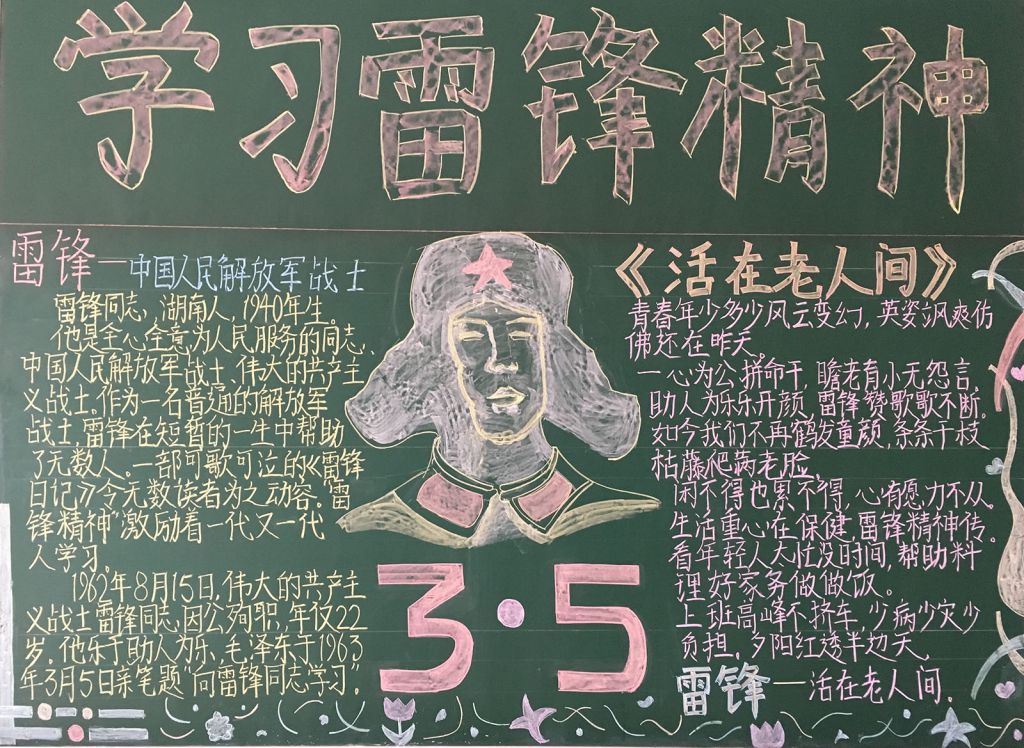 学习雷锋精神
雷锋—中国人民解放军战士
雷锋同志,湖南人,1940年生。
他是全心全意为人民服务的同志、
中国人民解放军战士、伟大的共产主
义战士。作为一名普通的解放军
战士,雷锋在短暂的一生中帮助
了无数人。一部可歌可泣的《雷锋
日记》令无数读者为之动容。“雷
锋精神”激励着一代又一代
人学习。
1962年8月15日,伟大的共产主
义战士雷锋同志因公殉职,年仅22
岁。他乐于助人为乐,毛泽东于1963
年3月5日亲笔题“向雷锋同志学习”。
3·5
《活在老人间》
青春年少多少风云变幻,英姿飒爽仿
佛还在昨天。
一心为公拼命干,瞻老育小无怨言。
助人为乐乐开颜,雷锋赞歌歌不断。
如今我们不再鹤发童颜,条条干枝
枯藤爬满老脸。
闲不得也累不得,心有愿力不从。
生活重心在保健,雷锋精神传。
看年轻人太忙没时间,帮助料
理好家务做做饭。
上班高峰不挤车,少病少灾少
负担。夕阳红透半边天。
雷锋—活在老人间。